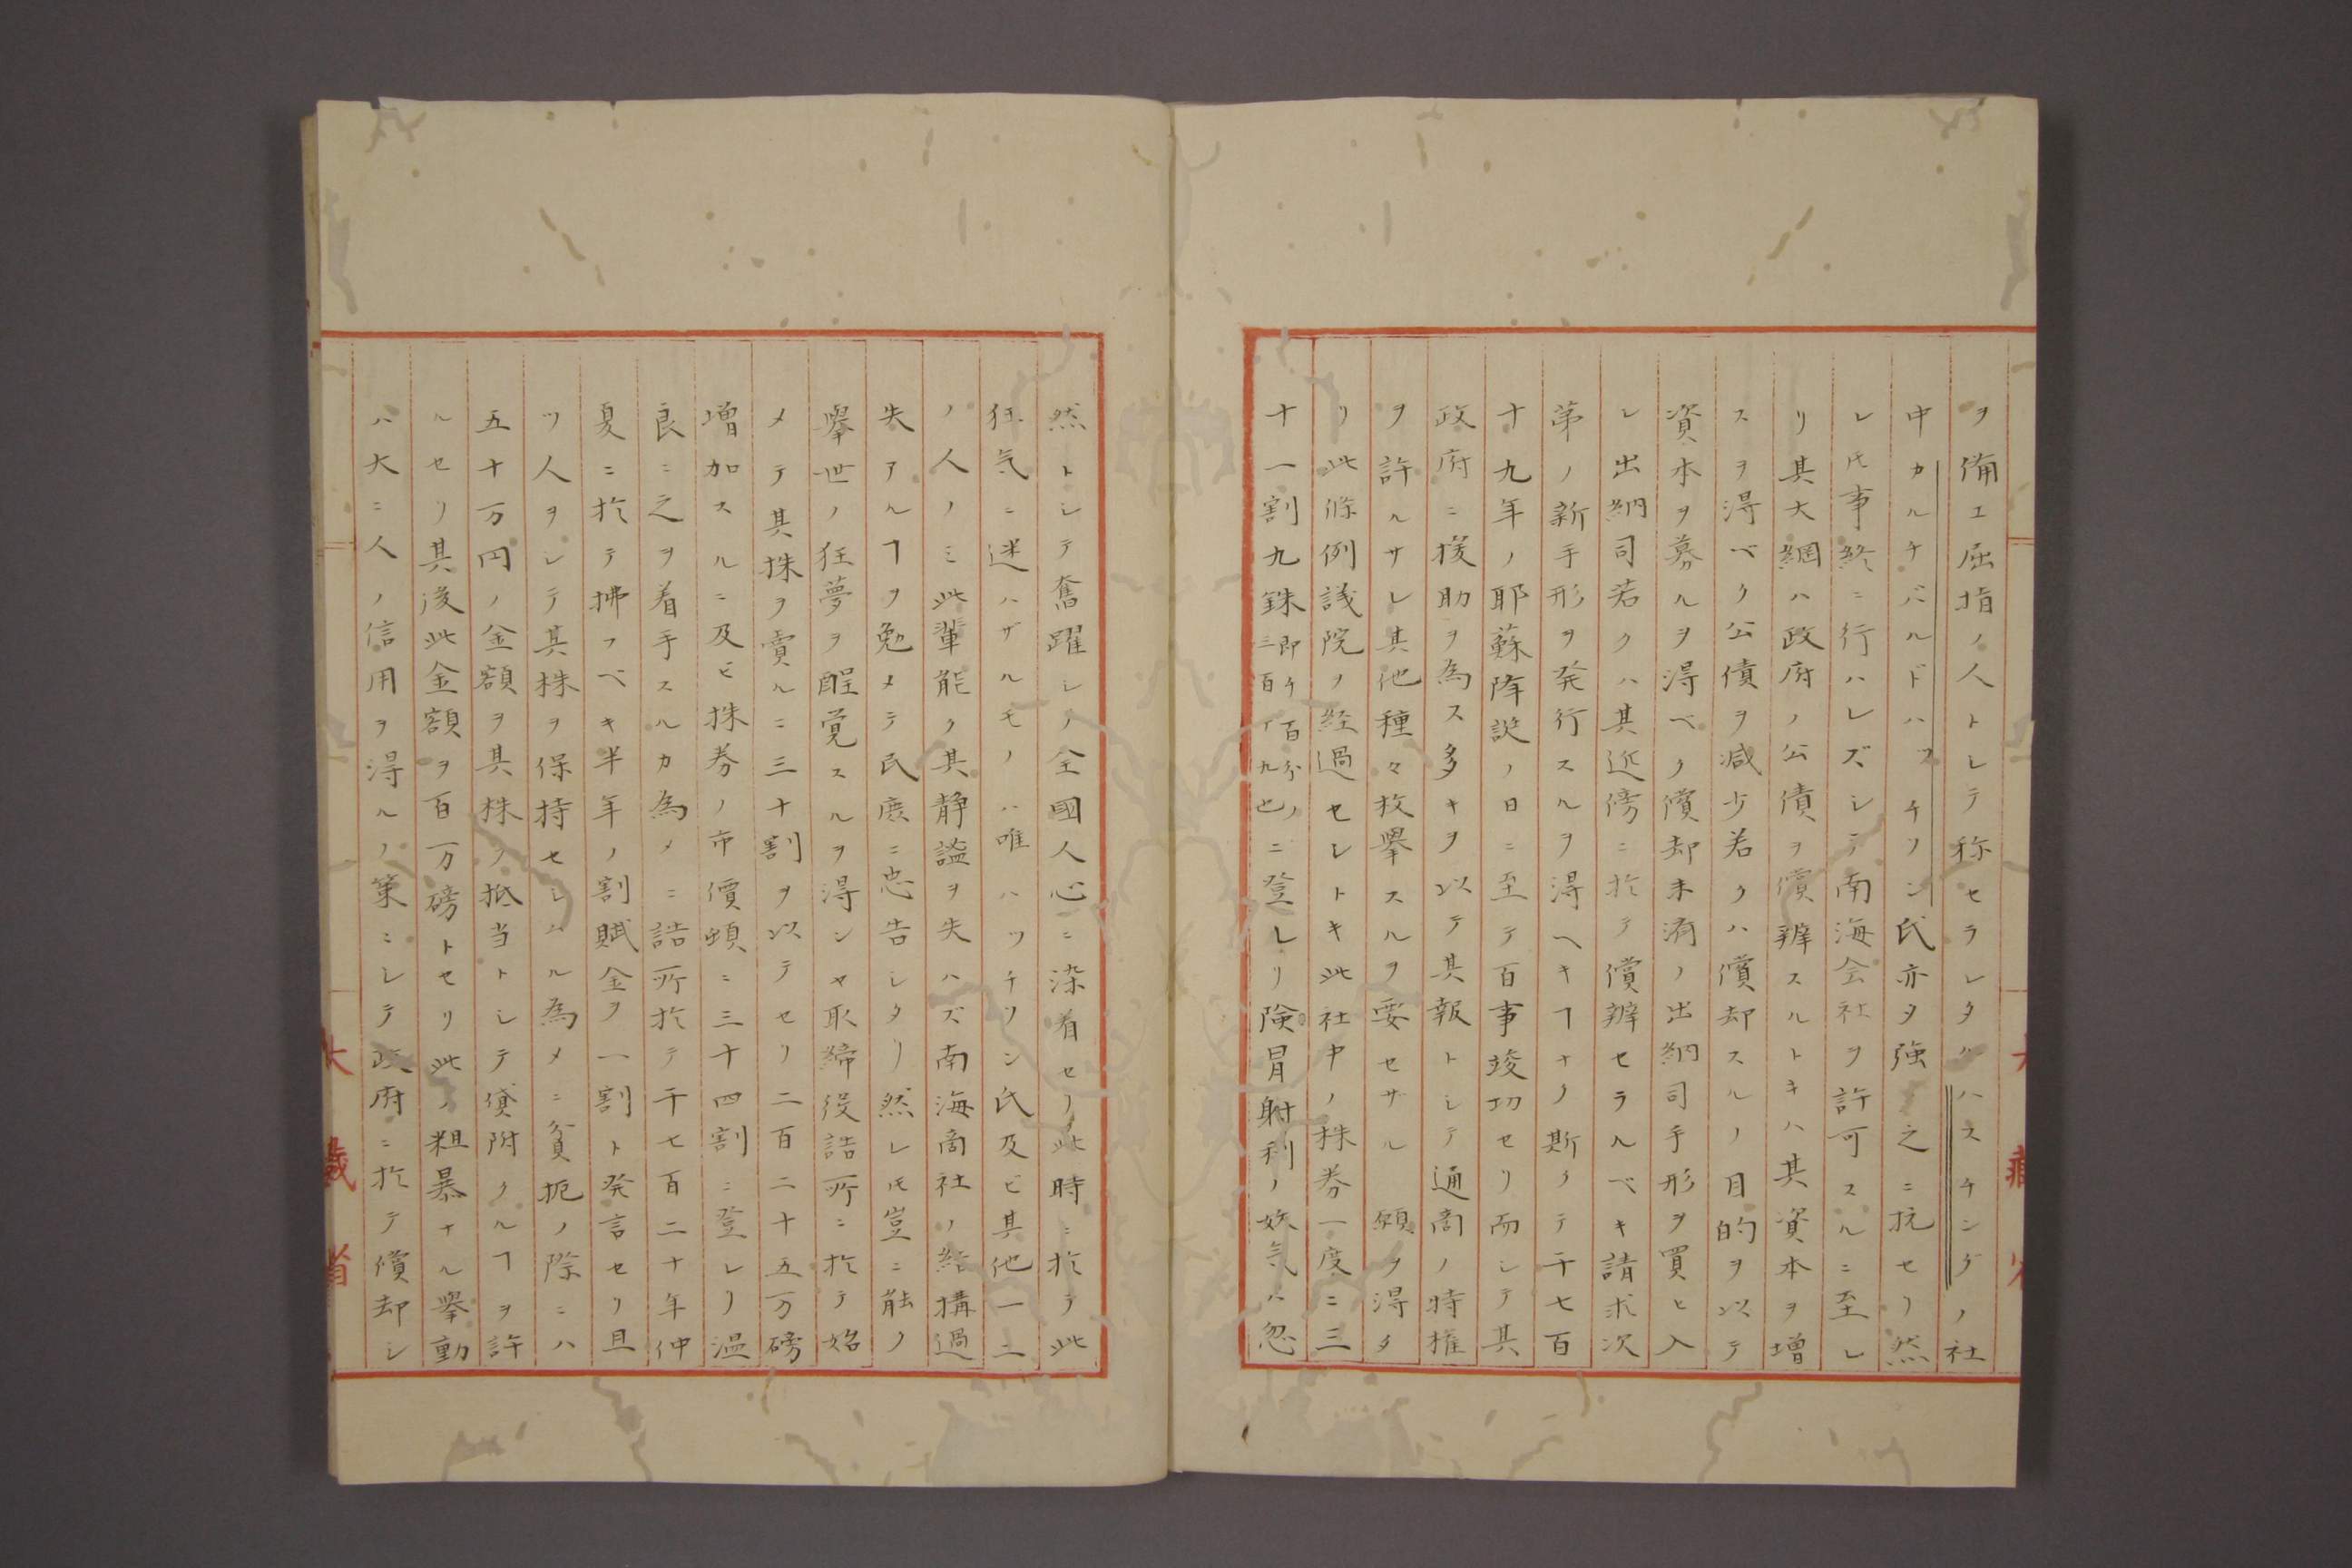 ヲ備エ屈指ノ人トシテ称セラレタルハスチングノ社
中カルチバルドハッチソン氏亦ヲ強之ニ抗セリ然
レ𪜈事終ニ行ハレズシテ南海会社ヲ許可スルニ至レ
リ其大綱ハ政府ノ公債ヲ償辨スルトキハ其資本ヲ増
スヲ得ベク公債ヲ減少若クハ償却スルノ目的ヲ以テ
資本ヲ募ルヲ得ベク償却未済ノ出納司手形ヲ買ヒ入
レ出納司若クハ其近傍ニ於テ償辨セラルベキ請求次
第ノ新手形ヲ発行スルヲ得ヘキヿナク斯クテ千七百
十九年ノ耶蘇降誕ノ日ニ至テ百事竣功セリ而シテ其
政府ニ援助ヲ為ス多キヲ以テ其報トシテ通商ノ特権
ヲ許ルサレ其他種々枚擧スルヲ要セザル 願ヲ得タ
リ此條例議院ノ経過セシトキ此社中ノ株券一度ニ三
十一割九銖即チ百分ノ三百十九也ニ登レリ険冒射利ノ妖気ハ忽
然トシテ奮躍シノ全國人心ニ染着セリ此時ニ於テ此
狂気ニ迷ハザルモノハ唯ハツチソン氏及ビ其他一二
ノ人ノミ此輩能ク其静謐ヲ失ハズ南海商社ノ結構過
失アルヿヲ勉メテ民庶ニ忠告シタリ然レ𪜈豈ニ能ク
擧世ノ狂夢ヲ醒覚スルヲ得ンヤ取締役詰所ニ於テ始
メテ其株ヲ賣ルニ三十割ヲ以テセリ二百二十五万磅
増加スルニ及ビ株券ノ市價頓ニ三十四割ニ登レリ温
良ニ之ヲ着手スルカ為メニ詰所於テ千七百二十年仲
夏ニ於テ拂フベキ半年ノ割賦金ヲ一割ト発言セリ且
ツ人ヲシテ其株ヲ保持セシムル為メニ貧扼ノ際ニハ
五十万円ノ金額ヲ其株ノ抵当トシテ貸附クルヿヲ許
ルセリ其後此金額ヲ百万磅トセリ此ノ粗暴ナル擧動
ハ大ニ人ノ信用ヲ得ルノ策ニシテ政府ニ於テ償却シ
大藏省